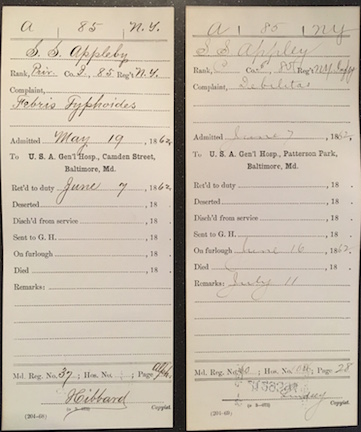 A 85 N.Y.
S. S. Appleby
Rank, Priv. Co. I, 85 Reg't N.Y.
Complaint,
Febris Typhoides
Admitted May 19, 1862.
To U. S. A. Gen'l Hosp., Camden Street,
Baltimore, Md.
Ret'd to duty June 7, 1862.
Deserted, 18 .
Disch'd from service, 18 .
Sent to G. H., 18 .
On furlough, 18 .
Died, 18 .
Remarks:
Md. Reg. No. 37; Hos. No. ; Page
Hibbard
(204–69) Copyist.
A 85 NY
S S Appley
Rank, Co. 85 Reg't NY
Complaint, Debilitas
Admitted June 7, 1862.
To U. S. A. Gen'l Hosp., Patterson Park,
Baltimore, Md.
Ret'd to duty, 18 .
Deserted, 18 .
Disch'd from service, 18 .
Sent to G. H., 18 .
On furlough June 16, 1862.
Died, 18 .
Remarks: July 11
Md. Reg. No. ; Hos. No. ; Page 28
Lindsey
(204–69) Copyist.